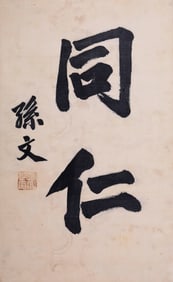 同仁
孫文